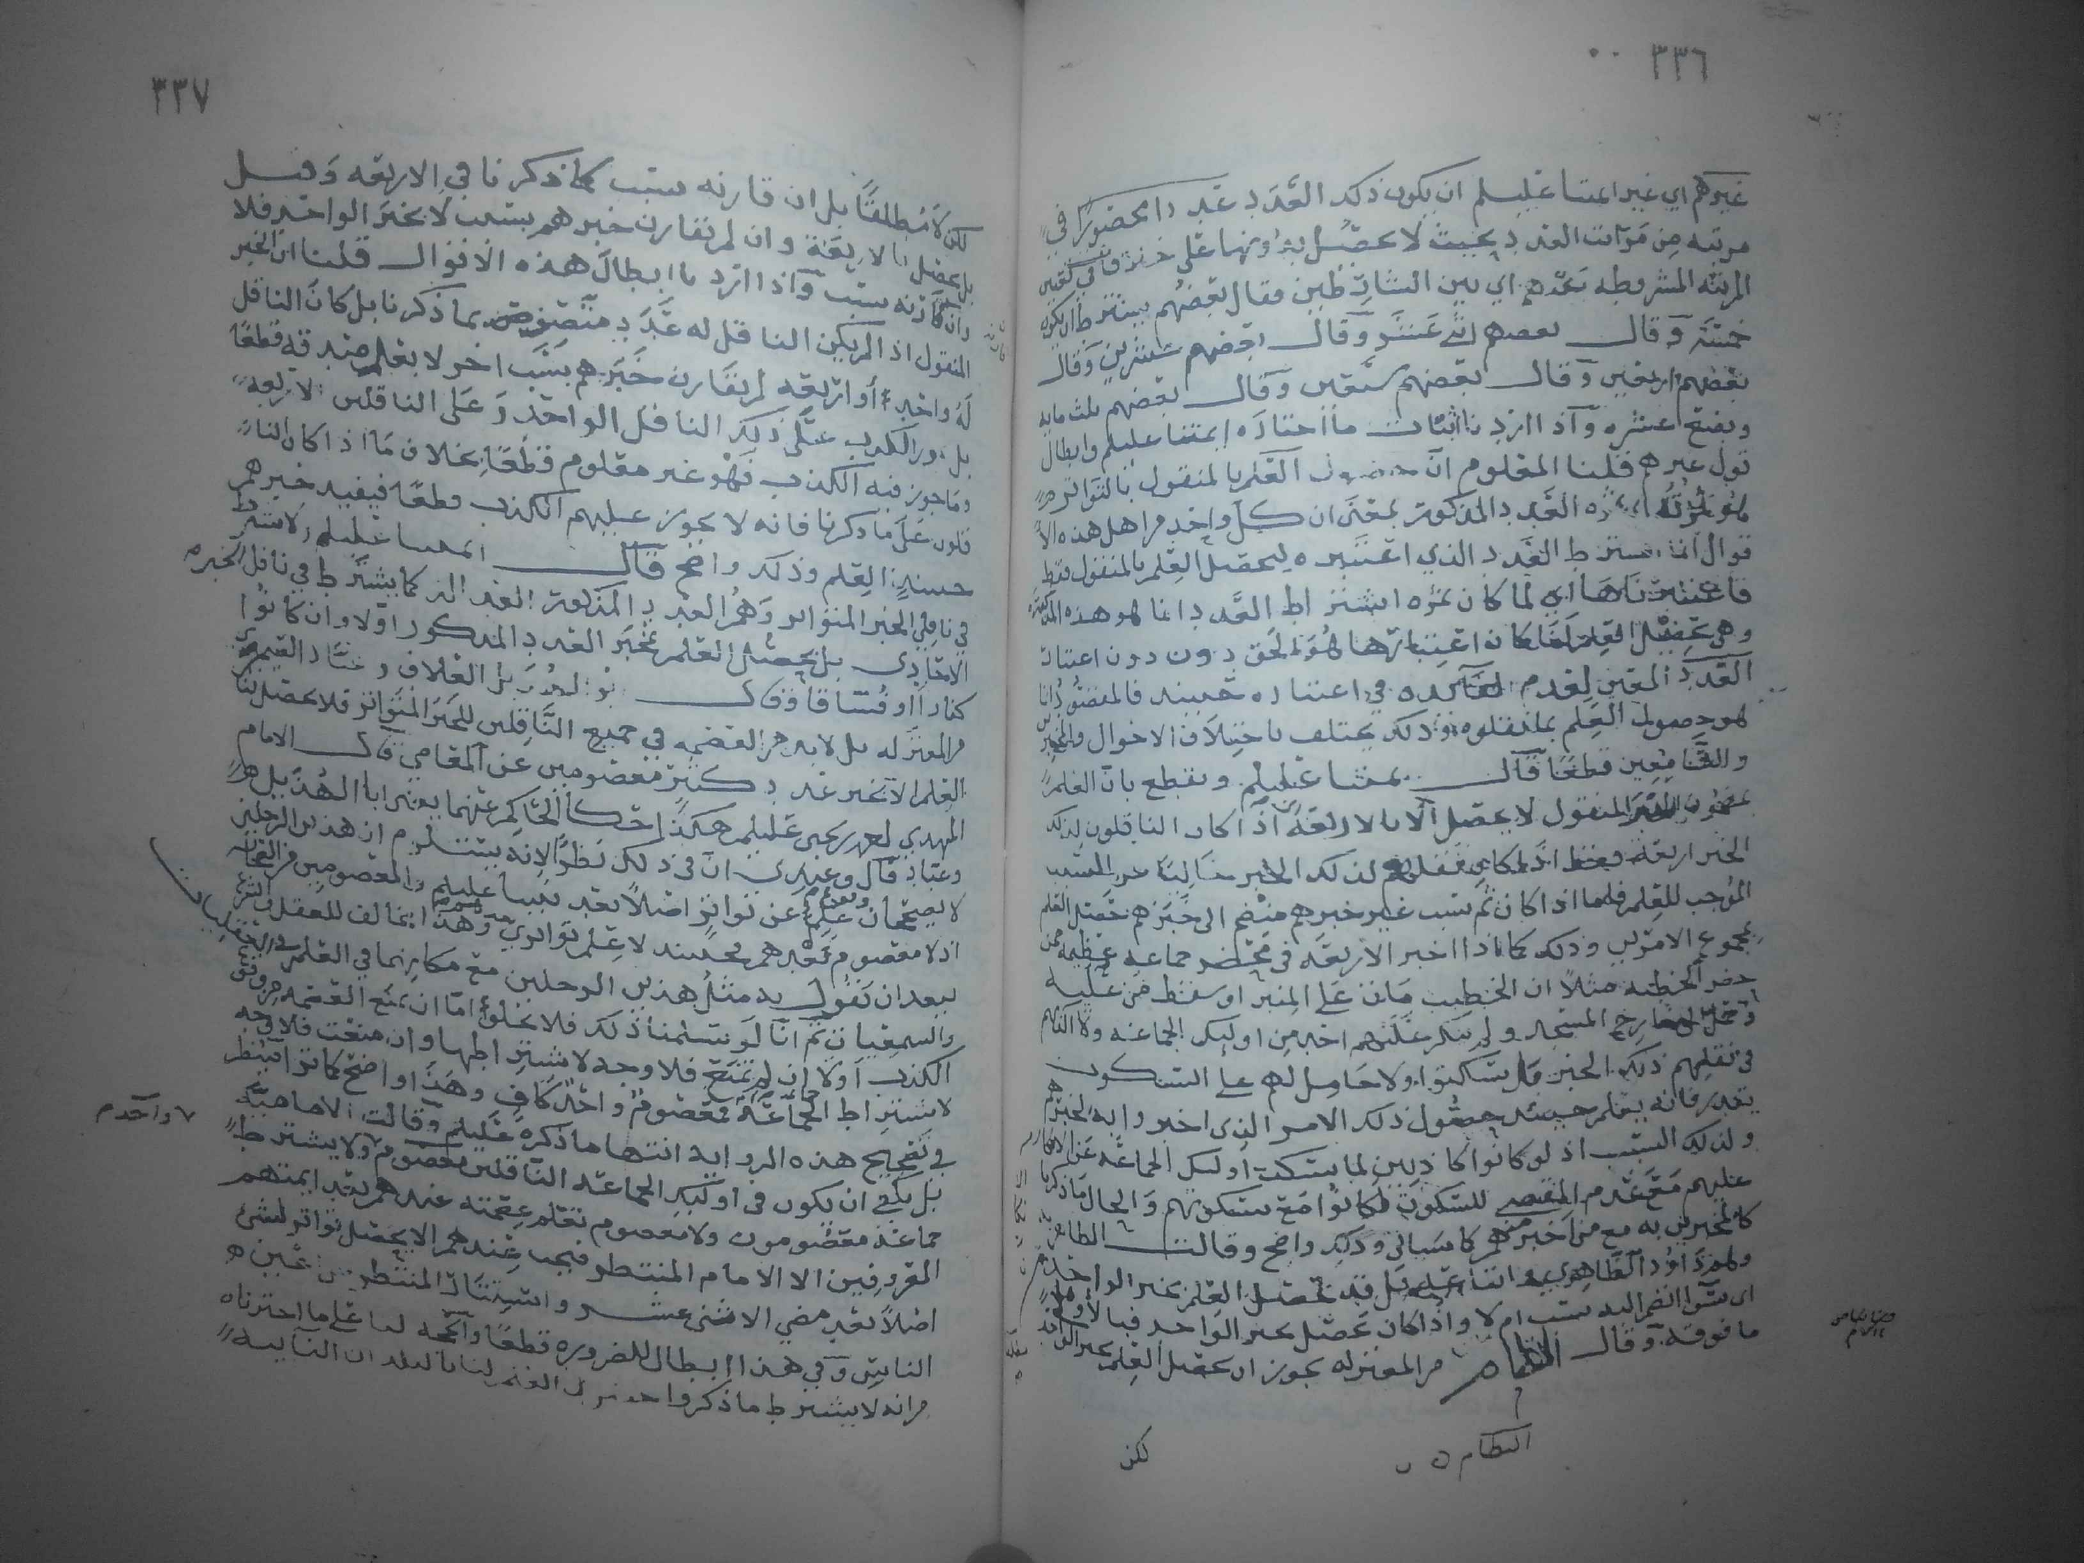 ٣٣٦
غيرهم اي غير ائمتنا عليلم ان يكون ذلك العدد عددا محضورا في
مرتبه من مراتب العدد بحيث لا يحصل بدونها على
المرتبه المشروطه عندهم اي بين الشارطين فقال بعضهم يشترط ان يكون
خمسة وقال بعضهم اثني عشر وقال بعضهم عشرين وقال
بعضهم اربعين وقال بعضهم سبعين وقال بعضهم ثلث مايه
وبضع عشره واذا اردنا اثبات ما اختاره ائمتنا عليلم وابطال
قول غيرهم قلنا المعلوم ان حصول العلم بالمنقول بالتواتر
هو ثمرة العدد المذكور بمعنى ان كل واحد من اهل هذه الا
قوال انما يشترط العدد الذي اعتبره ليحصل العلم بالمنقول فقط
فاعتبرناها اي لما كان ثمره اشتراط العدد انما هو هذه
وهي تحصيل العلم كان اعتبارها هو الحق دون اعتبار
العدد المعين لعدم الفائده في اعتباره حينئذ فالمقصود انما
هو حصول العلم بما نقلوه وذلك يختلف باختلاف الاحوال والمخبرين
والسامعين قطعا قال ائمتنا عليلم ونقطع بان العلم
بالمنقول لا يحصل الا بالاربعة اذا كان الناقلون لذلك
الخبر اربعة فقط اذا كان نقلهم لذلك الخبر خاليا عن السبب
الموجب للعلم فاما اذا كان ثم سبب غير خبرهم منضم الى خبرهم حصل العلم
بمجموع الامرين وذلك كما اذا اخبر الاربعة في محضر جماعه عظيمه ممن
حضر الخطبه مثلا ان الخطيب مات على المنبر او سقط من عليه
خارج المسجد ولم ينكر عليهم احد من اوليك الجماعه ولا اتهم
في نقلهم ذلك الخبر بل سكتوا ولا حامل لهم على السكون
يقدر فانه يعلم حينئذ حصول ذلك الامر الذي اخبروا به لخبرهم
ولذلك السبب اذ لو كانوا كاذبين لما سكت اوليك الجماعه عن
عليهم مع عدم المقتضي للسكوت فكانوا مع سكوتهم والحال ما ذكرنا
كالمخبرين به مع من اخبر منهم كما سياتي وذلك واضح وقالت الظاهريه
وهم داود الظاهري واتباعه بل قد يحصل العلم بخبر الواحد
اي سوا انضم اليه سبب ام لا واذا كان يحصل بخبر الواحد فبالاولى
ما فوقه وقال النظام من المعتزله يجوز ان يحصل العلم بخبر الواحد
النظام ن
لكن
٣٣٧
لكن لا مطلقا بل ان قارنه سبب كما ذكرنا في الاربعه وقيل
بل يحصل بالاربعة وان لم تقارن خبرهم بسبب لا بخبر الواحد فلا
وان قارنه سبب واذا اردنا ابطال هذه الاقوال قلنا ان الخبر
المنقول اذا لم يكن الناقل له عدد متصف بما ذكرنا بل كان الناقل
له واحد او اربعه لم يقارن خبرهم بسبب اخر لا يعلم صدقه قطعا
بل يجوز الكذب على ذلك الناقل الواحد وعلى الناقلين الاربعه
وما جوز فيه الكذب فهو غير معلوم قطعا بخلاف ما اذا كان النا
قلون على ما ذكرنا فانه لا يجوز عليهم الكذب قطعا فيفيد خبرهم
حينئذ العلم وذلك واضح قال ائمتنا عليلم ولا يشترط
في ناقلي الخبر المتواتر وهم العدد المذكور العداله كما يشترط في ناقل الخبر
الاحادي بل يحصل العلم بخبر العدد المذكور اولا وان كانوا
كفارا او فساقا وقال ابو الهذيل العلاف وعباد الضيمري
من المعتزله بل لابد من العصمه في جميع الناقلين للخبر المتواتر فلا يحصل لنا
العلم الا بخبر عدد كثير معصومين عن المعاصي قال الامام
المهدي احمد بن يحيى عليلم هكذا حكا الحاكم عنهما يعني ابا الهذيل
وعباد قال وعندي ان في ذلك نظرا لانه يستلزم ان هذين الرجلين
لا يصححان علم عن تواتر اصلا بعد نبينا عليلم والمعصومين من الصحابه
اذ لا معصوم بعدهم فحينئذ لا علم تواتري وهذا يخالف للعقل والشرع
يبعد ان يقول به مثل هذين الرجلين مع مكانهما في العلم في العقليات
والسمعيات ثم انا لو سلمنا ذلك فلا يخلوا اما ان تمنع العصمه من وقوع
الكذب اولا ان لم تمنع فلا وجه لاشتراطها وان منعت فلا وجه
لاشتراط الجماعة فمعصوم واحد كاف وهذا واضح كما ترا فينظر
في تصحيح هذه الروايه انتها ما ذكره عليلم وقالت الاماميه
بل يكفي ان يكون في اوليك الجماعه الناقلين معصوم ولا يشترط
جماعة معصومون ولا معصوم تعلم عصمته عندهم بعد ايمتهم
المعروفين الا الامام المنتظر فيجب عندهم الا يحصل تواتر لشئ
اصلا بعد مضي الاثنى عشر واستتار المنتظر عن اعين
الناس وفي هذا ابطال للضروره قطعا والحجه لنا على ما اخترناه
من انه لا يشترط ما ذكروا حصول العلم لنا بالبلدان النائيه
٧ واحدم